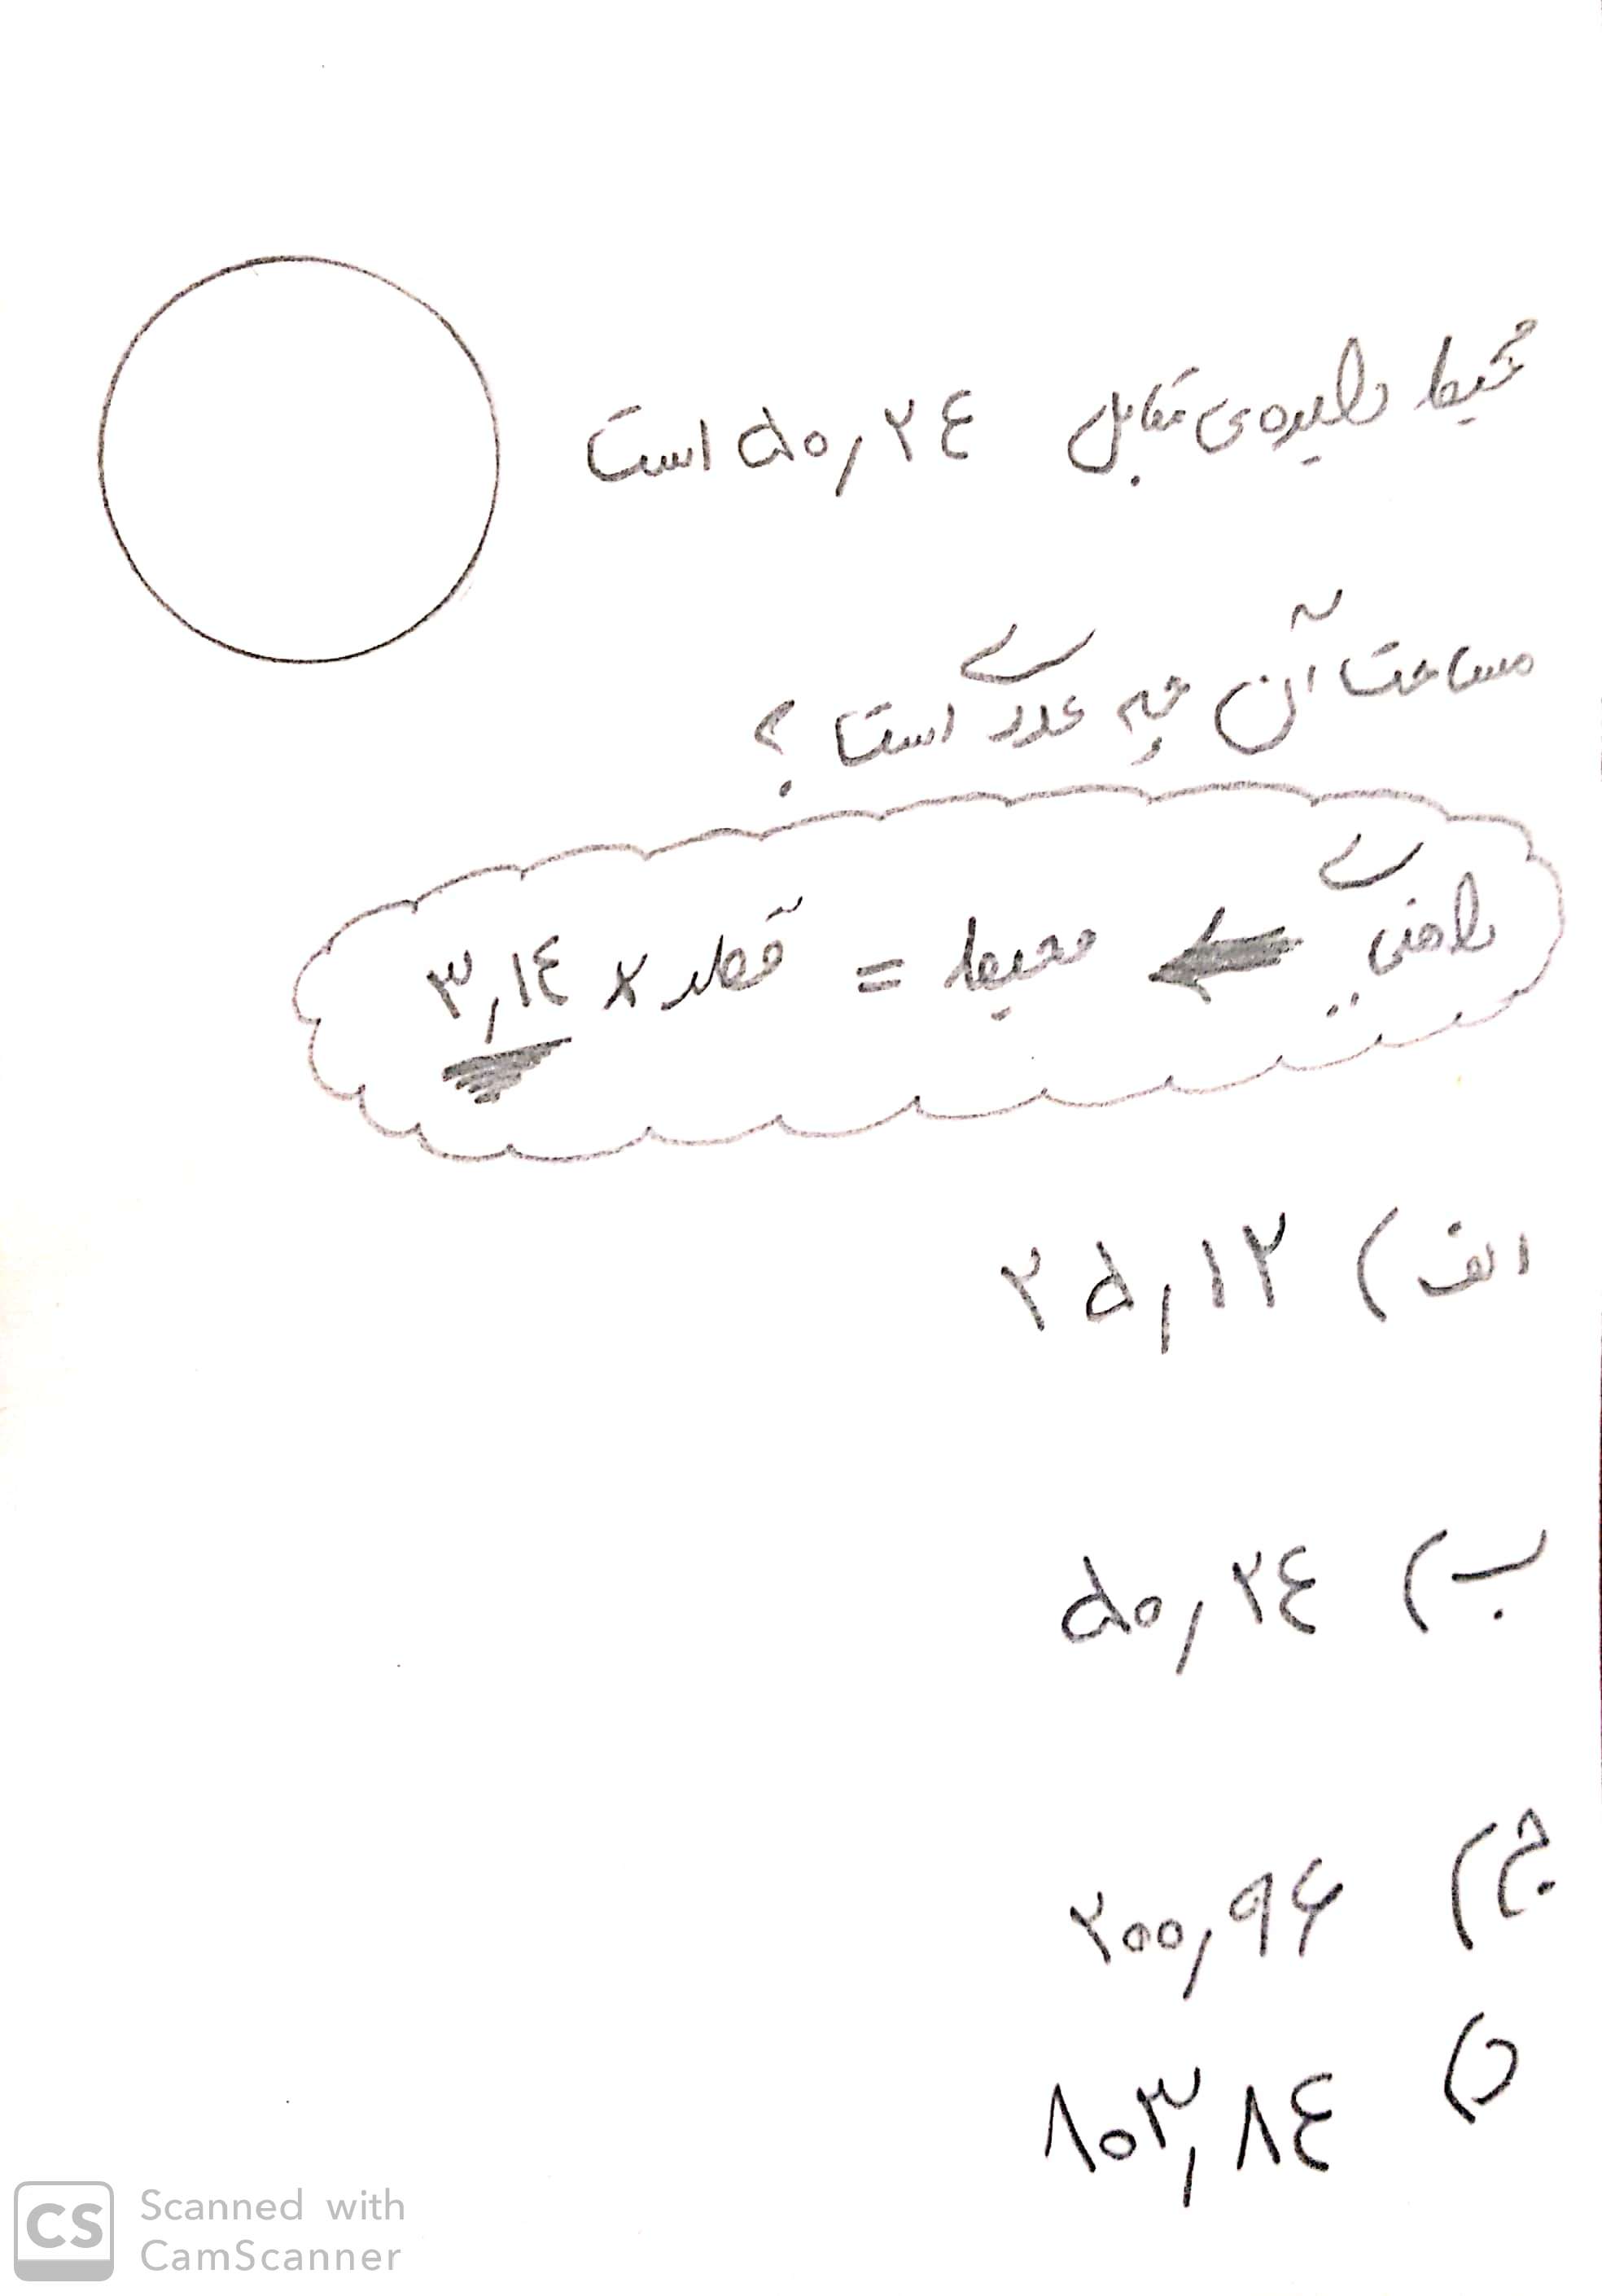 محیط دایره‌ی مقابل ۵۰٫۲۴ است
مساحت آن چه عددی است؟
راهنمایی ← محیط = قطر × ۳٫۱۴
الف) ۲۵٫۱۲
ب) ۵۰٫۲۴
ج) ۲۰۰٫۹۶
د) ۸۰۳٫۸۴
CS Scanned with
CamScanner